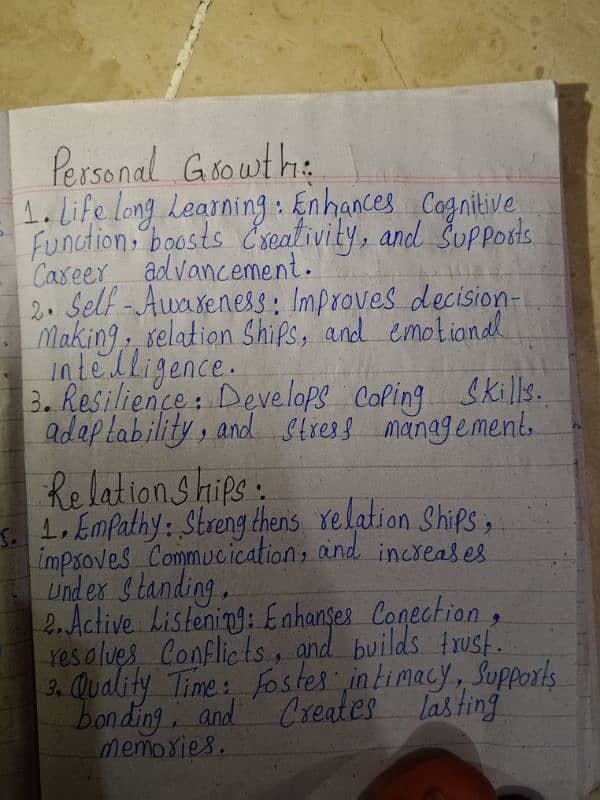 Personal Growth:
1. Life long Learning: Enhances Cognitive
Function, boosts Creativity, and Supports
Career advancement.
2. Self-Awareness: Improves decision-
Making, relation Ships, and emotional
intelligence.
3. Resilience: Develops Coping Skills.
adaptability, and Stress management.
Relation Ships:
1. Empathy: Strengthens relation Ships,
improves Commucication, and increases
under Standing.
2. Active Listening: Enhanses Conection,
resolves Conflicts, and builds trust.
3. Quality Time: Foster intimacy, Supports
bonding, and Creates lasting
memories.
5.